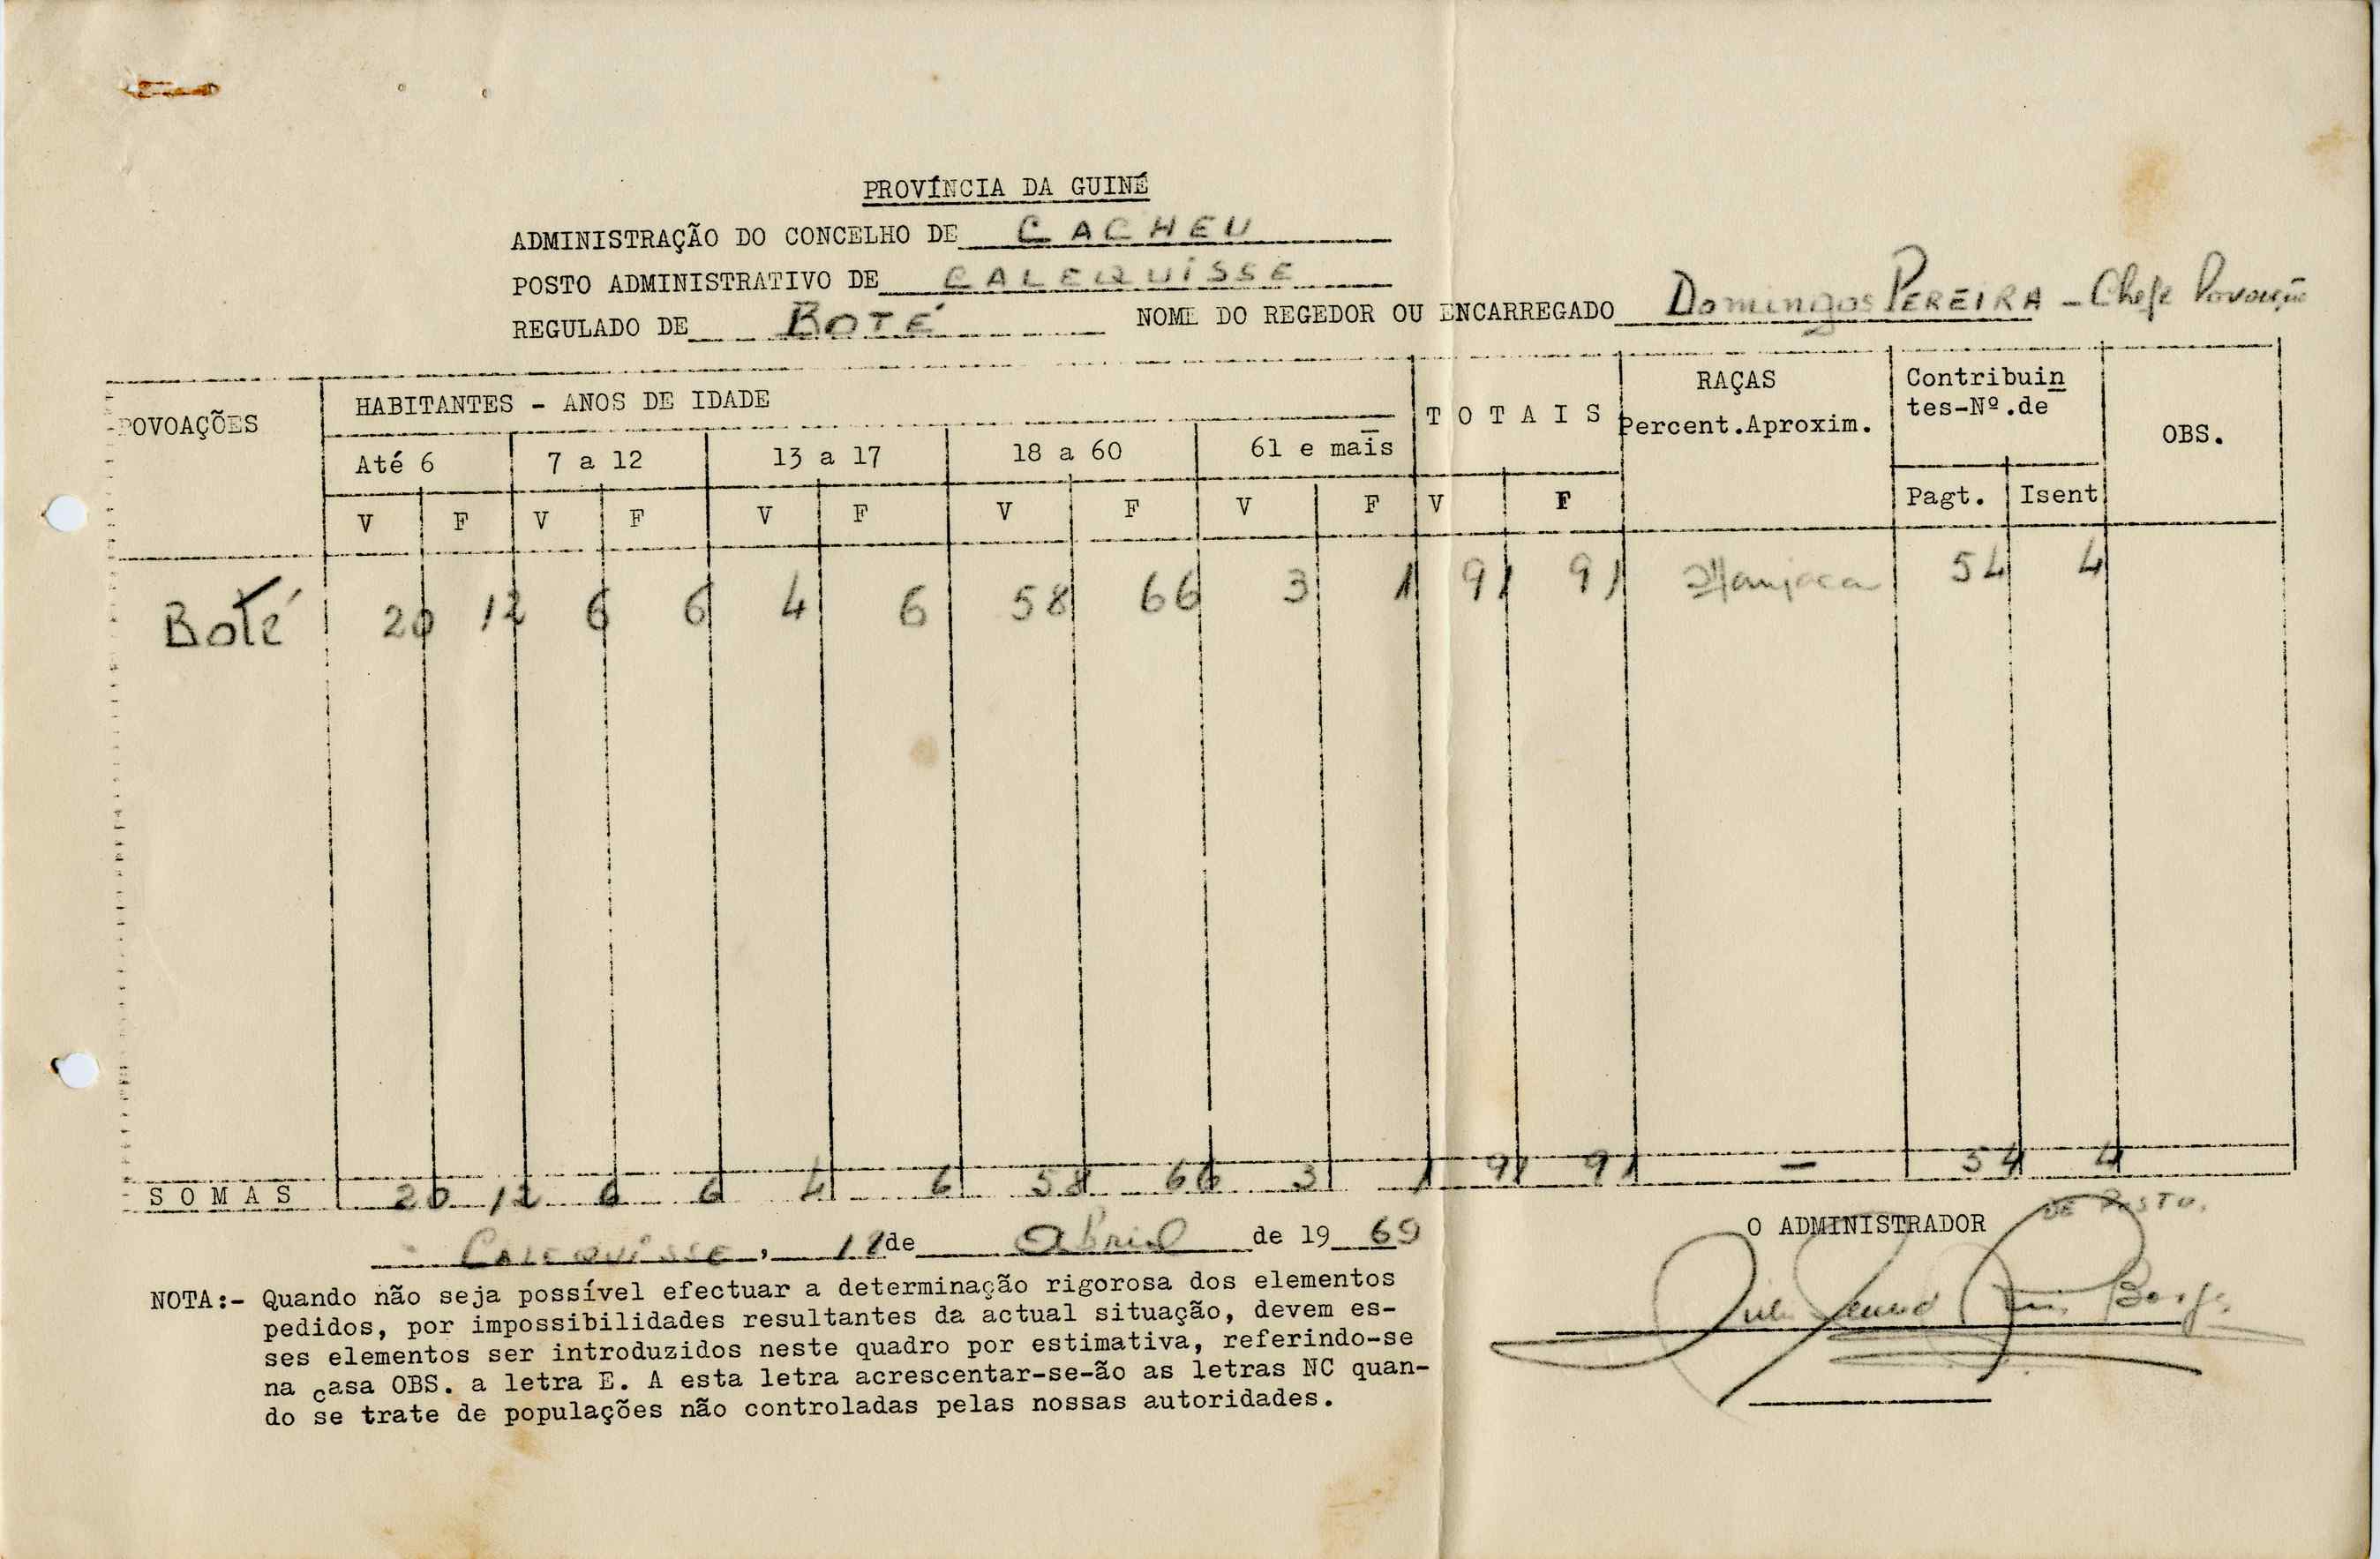 PROVÍNCIA DA GUINÉ
ADMINISTRAÇÃO DO CONCELHO DE CACHEU
POSTO ADMINISTRATIVO DE CALEQUISSE
REGULADO DE BOTÉ NOME DO REGEDOR OU ENCARREGADO Domingos PEREIRA - Chefe Povoação
POVOAÇÕES HABITANTES - ANOS DE IDADE T O T A I S RAÇAS Percent.Aproxim. Contribuin tes-Nº.de OBS.
Até 6 7 a 12 13 a 17 18 a 60 61 e mais
V F V F V F V F V F V F Pagt. Isent
Boté 20 12 6 6 4 6 58 66 3 1 91 91 Manjaca 54 4
S O M A S 20 12 6 6 4 6 58 66 3 1 91 91 - 54 4
CALEQUISSE, de Abril de 19 69
O ADMINISTRADOR DE POSTO.
NOTA:- Quando não seja possível efectuar a determinação rigorosa dos elementos
pedidos, por impossibilidades resultantes da actual situação, devem es-
ses elementos ser introduzidos neste quadro por estimativa, referindo-se
na casa OBS. a letra E. A esta letra acrescentar-se-ão as letras NC quan-
do se trate de populações não controladas pelas nossas autoridades.